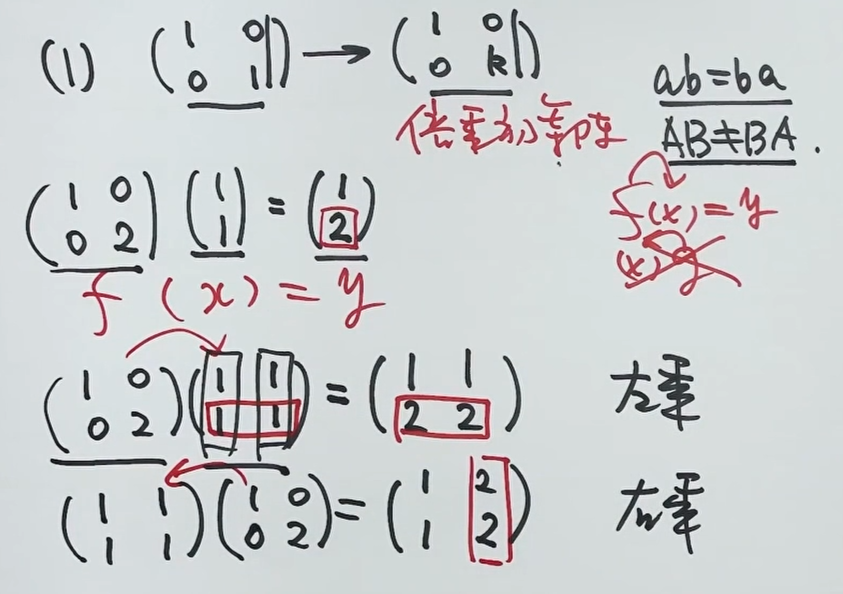 (1) (1 0 0 1) → (1 0 0 k)
倍乘初等阵
ab=ba
AB≠BA.
(1 0 0 2) (1 1) = (1 2)
f (x) = y
f(x)=y
(x)
(1 0 0 2)(1 1 1 1) = (1 1 2 2) 左乘
(1 1 1 1)(1 0 0 2) = (1 2 1 2) 右乘